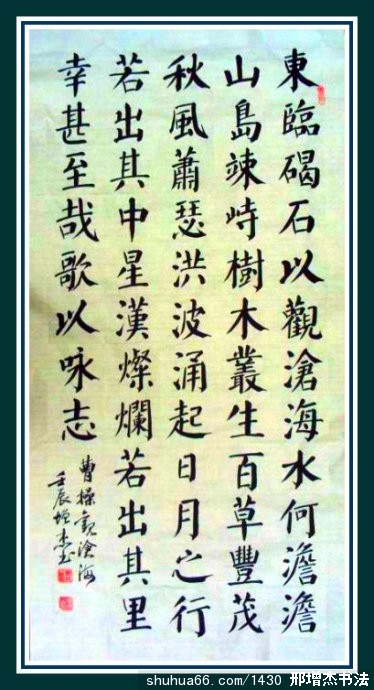 東臨碣石以觀滄海水何澹澹
山島竦峙樹木叢生百草豐茂
秋風蕭瑟洪波涌起日月之行
若出其中星漢燦爛若出其里
幸甚至哉歌以咏志
曹操觀滄海
壬辰增杰书
shuhua66.com/1430 邢增杰书法